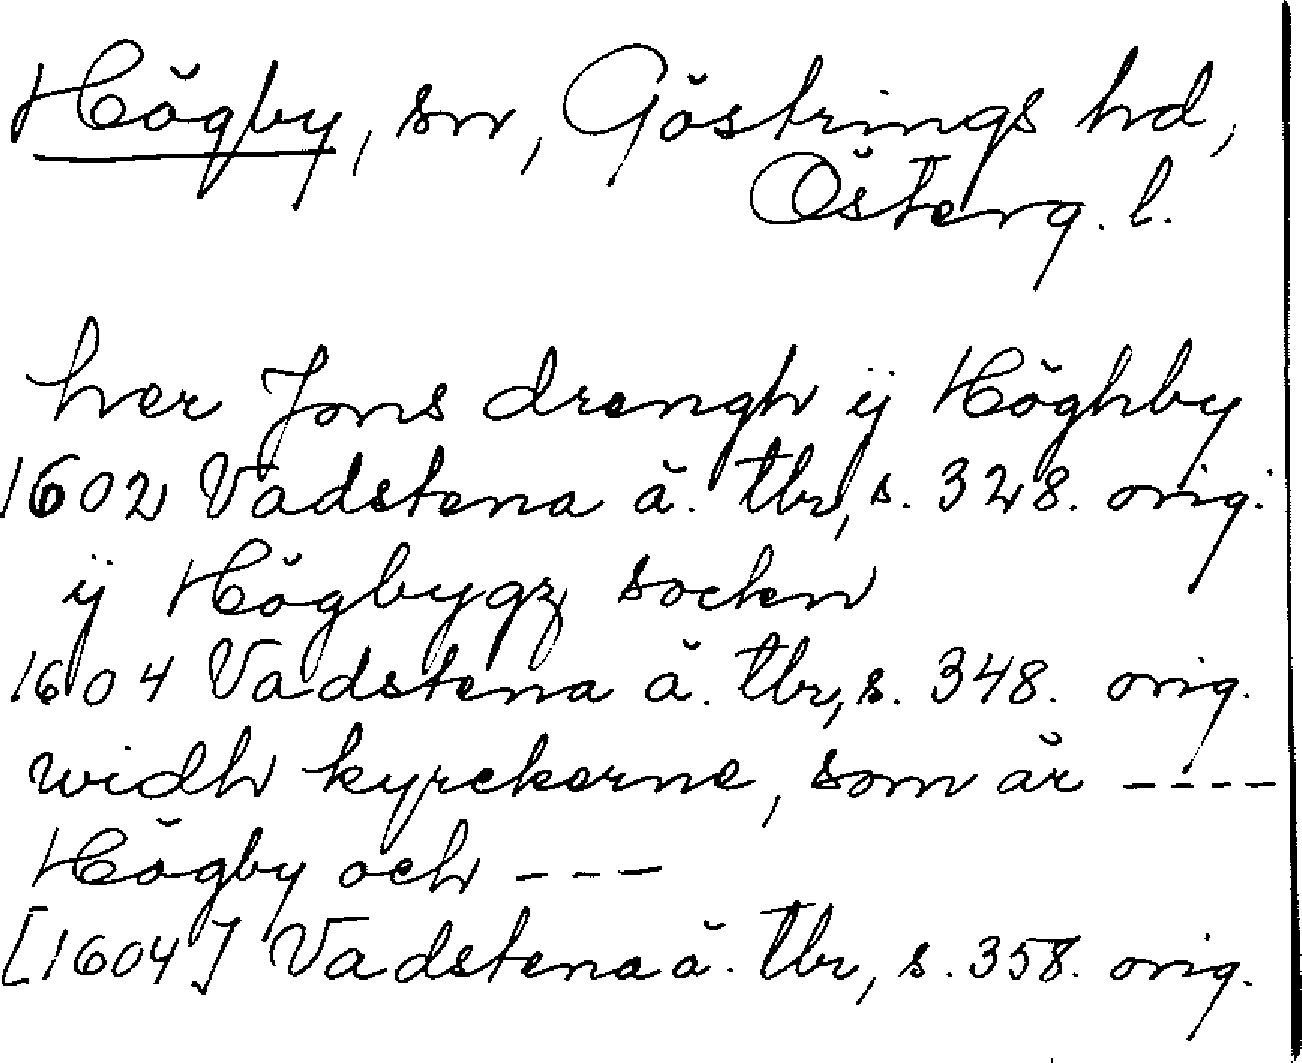 Högby, sn, Göstrings hd,
Österg. l.
her Jons drengh ij Höghby
1602 Vadstena ä. tbr, s. 328. orig.
ij Högbygz socken
1604 Vadstena ä. tbr, s. 348. orig.
widh kyrckerne, som är ----
Högby och ---
[1604] Vadstena ä. tbr, s. 358. orig.